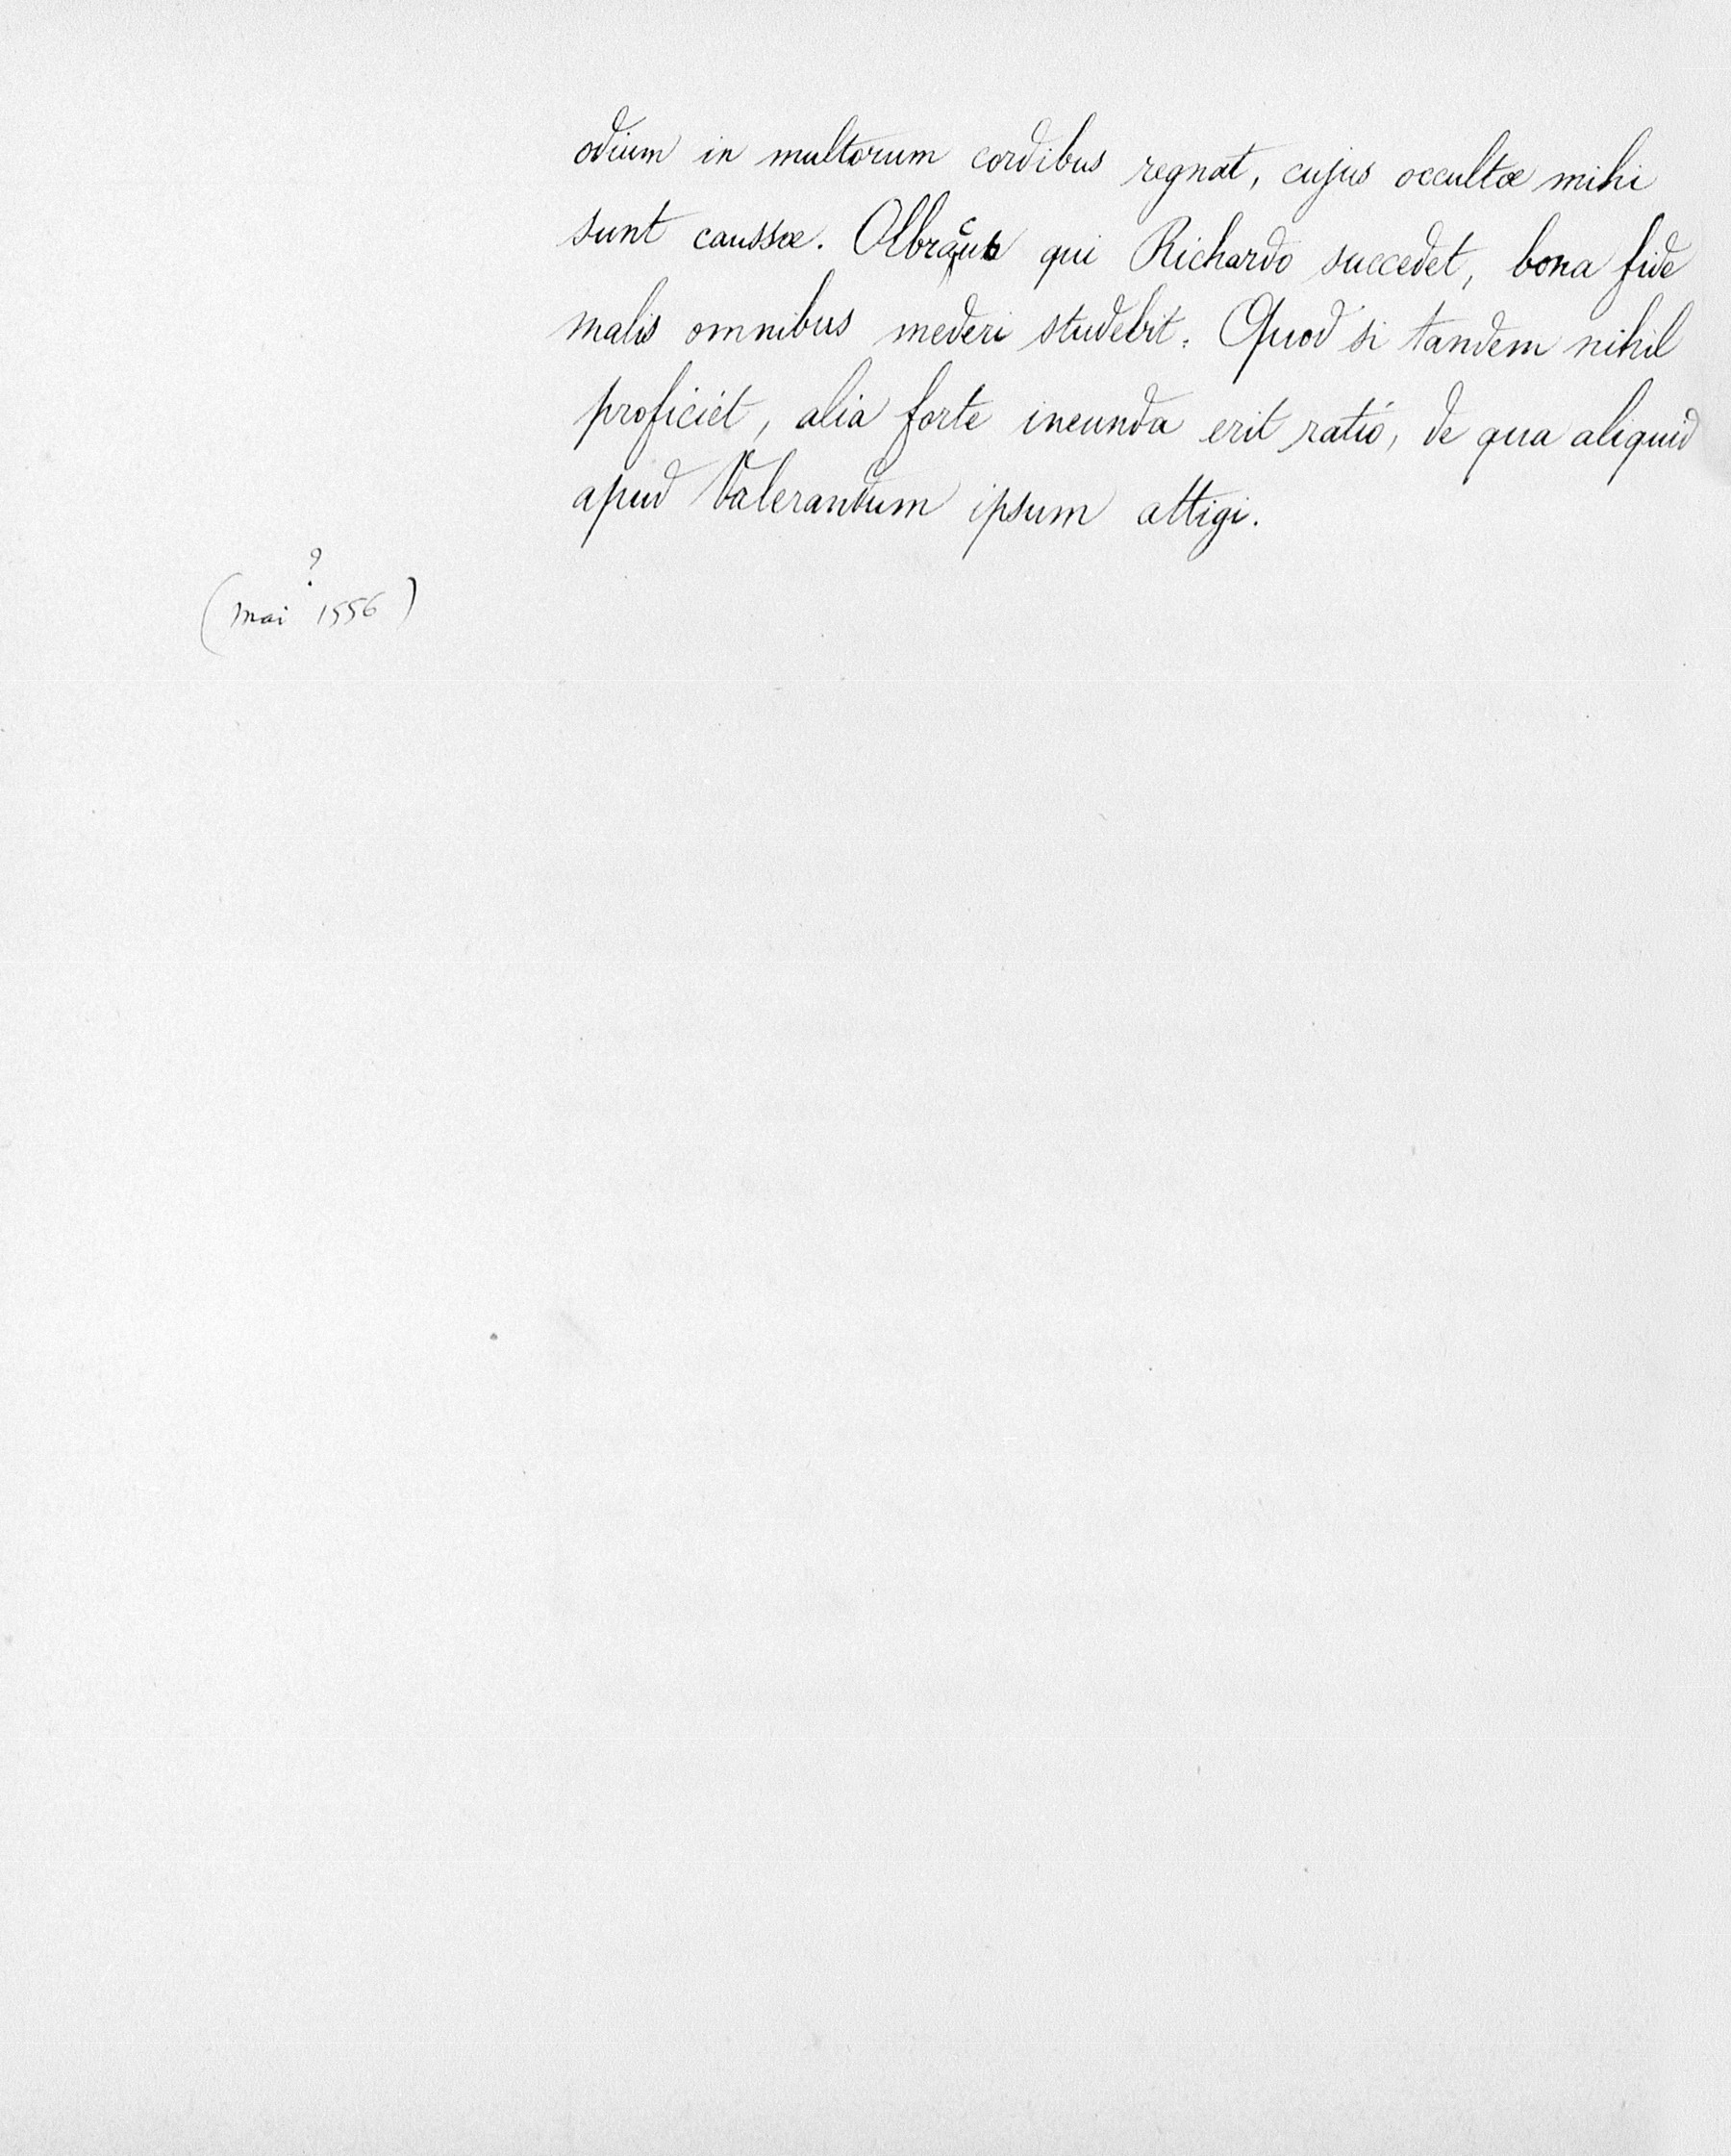 odium in multorum cordibus regnat, cujus occultæ mihi
sunt caussæ. Olbracus qui Richardo succedet, bona fide
malis omnibus mederi studebit. Quod si tandem nihil
proficiet, alia forte ineunda erit ratio, de qua aliquid
apud Valerandum ipsum attigi.
?
(mai 1556)